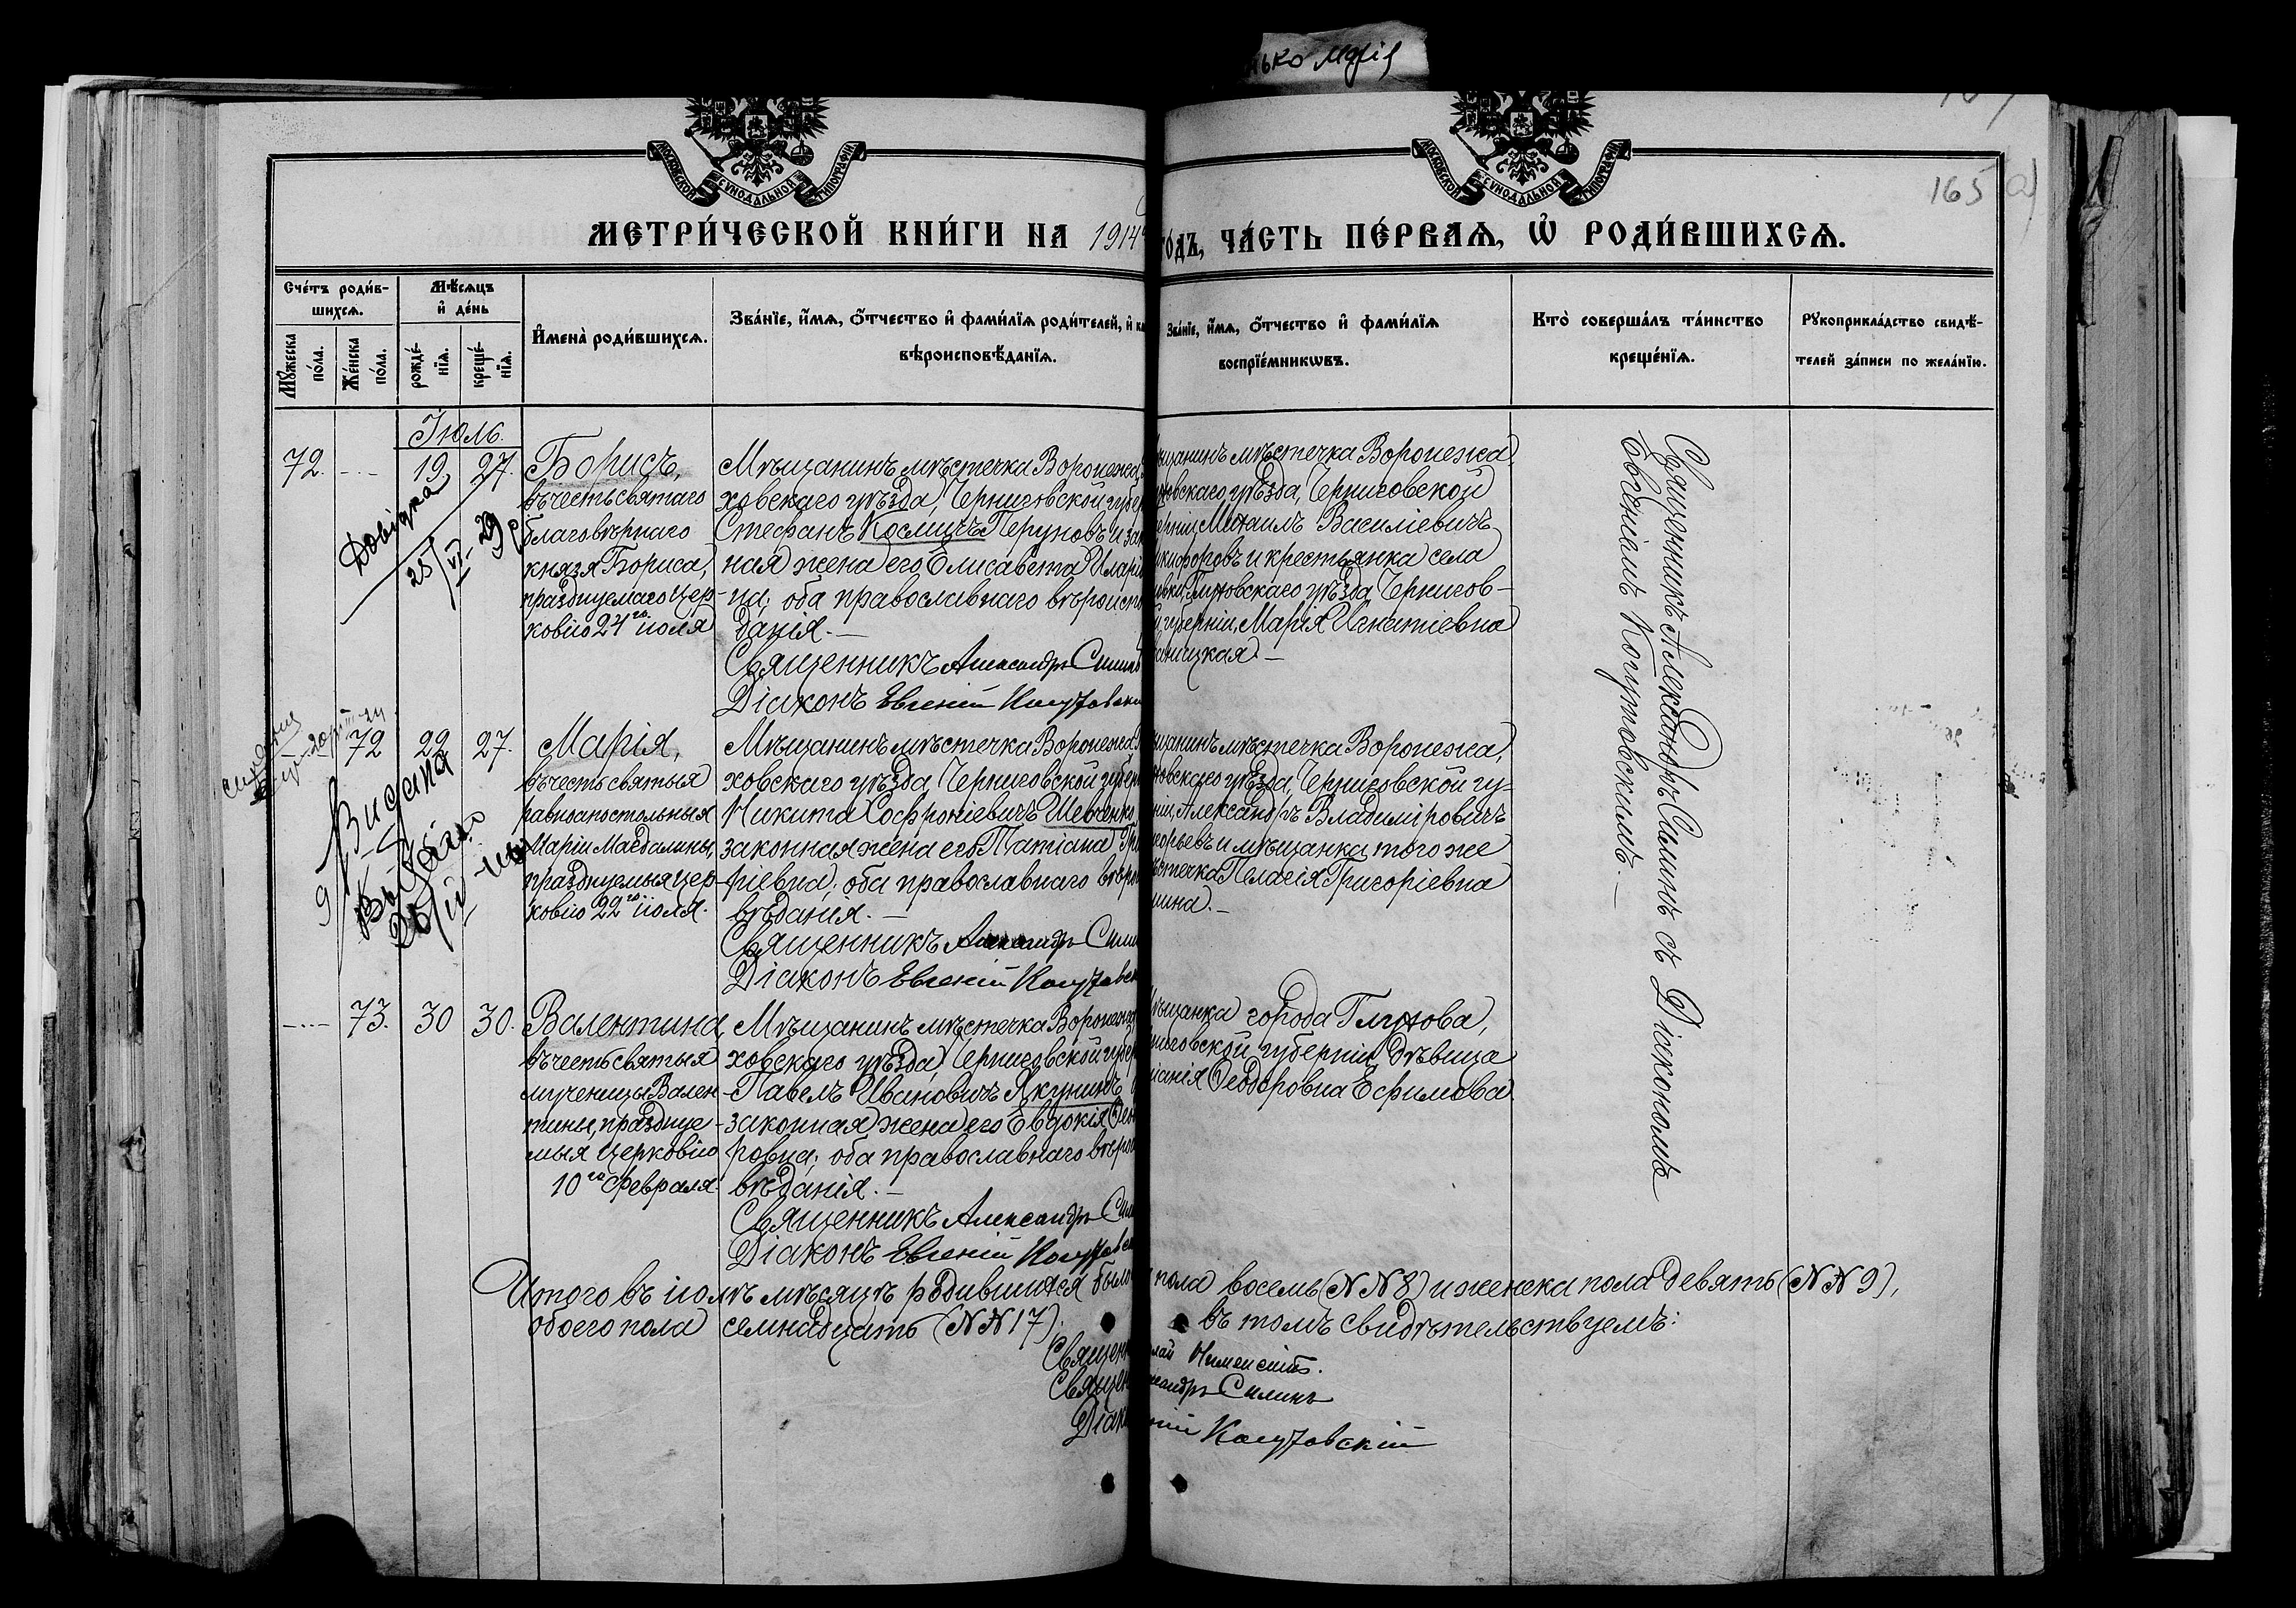 МОСКОВСКОЙ СѴНОДАЛЬНОЙ ТИПОГРАФІИ
МОСКОВСКОЙ СѴНОДАЛЬНОЙ ТИПОГРАФІИ
165
МЕТРИ́ЧЕСКОЙ КНИ́ГИ НА 1914
ГО́ДЪ, ЧА́СТЬ ПЕ́РВАѦ, Ѡ҆ РОДИ́ВШИХСѦ.
Сче́тъ роди́в-
шихсѧ.
Мꙋ́жеска по́ла.
Же́нска по́ла.
Мѣ́сѧцъ
и҆ де́нь
рожде́-
нїѧ.
креще́-
нїѧ.
И҆мена̀ роди́вшихсѧ.
Зва́нїе, и҆́мѧ, ѻ҆́тчество и҆ фами́лїѧ роди́телей, и҆
вѣроисповѣ́данїѧ.
Зва́нїе, и҆́мѧ, ѻ҆́тчество и҆ фами́лїѧ
воспрїе́мникѡвъ.
Кто̀ соверша́лъ та́инство
креще́нїѧ.
Рꙋкоприкла́дство свидѣ́-
телей за́писи по жела́нїю.
Іюль.
72. 19. 27.
Борисъ,
въ честь святаго
благовѣрнаго
князя Бориса,
празднуемаго цер-
ковію 24го іюля
Мѣщанинъ мѣстечка Воронежа,
ховскаго уѣзда, Черниговской губер
Стефанъ Космичъ Перуновъ и зак
ная жена его Елисавета Иларі
на; оба православнаго вѣроиспо
данія.—
Священникъ Александръ Силин
Діаконъ Евгеній Когутовски
щанинъ мѣстечка Воронежа,
ховскаго уѣзда, Черниговской
берніи, Михаилъ Василіевичъ
кифоровъ и крестьянка села
Глуховскаго уѣзда, Чернигов-
губерніи, Марія Игнатіевна
ницкая.—
Священникъ Александръ Силинъ съ Діакономъ
Евгеніемъ Когутовскимъ.—
Довідка
25/VI-29р
72 22 27.
Марія,
въ честь святыя
равноапостольныя
Маріи Магдалины,
празднуемыя цер-
ковію 22го іюля.
Мѣщанинъ мѣстечка Воронежа,
ховскаго уѣзда, Черниговской губер
Никита Софроніевичъ Шевченко
законная жена его Татіана Гри
ріевна; оба православнаго вѣрои
вѣданія.—
Священникъ Александръ Сили
Діаконъ Евгеній Когутовск
щанинъ мѣстечка Воронежа,
ховскаго уѣзда, Черниговской гу-
ніи, Александръ Владиміровичъ
горьевъ и мѣщанка того же
ѣстечка Пелагія Григоріевна
шина.—
Видана
73. 30 30.
Валентина,
въ честь святыя
мученицы Вален-
тины, празднуе-
мыя церковію
10го февраля.
Мѣщанинъ мѣстечка Воронежа
ховскаго уѣзда, Черниговской губер
Павелъ Ивановичъ Якунинъ
законная жена его Евдокія Ѳео
ровна; оба православнаго вѣрои
вѣданія.—
Священникъ Александръ Сили
Діаконъ Евгеній Когутовск
ѣщанка города Глухова,
ниговской губерніи, дѣвица
Ѳеодоровна Ефимова
Итого въ іюлѣ мѣсяцѣ родившихся было
пола восемь (NN 8) и женска пола девять (NN 9),
обоего пола семнадцать (NN 17)
въ томъ свидѣтельствуемъ:
Священ
Священ
ксандръ Силинъ
Діако
ній Когутовскій